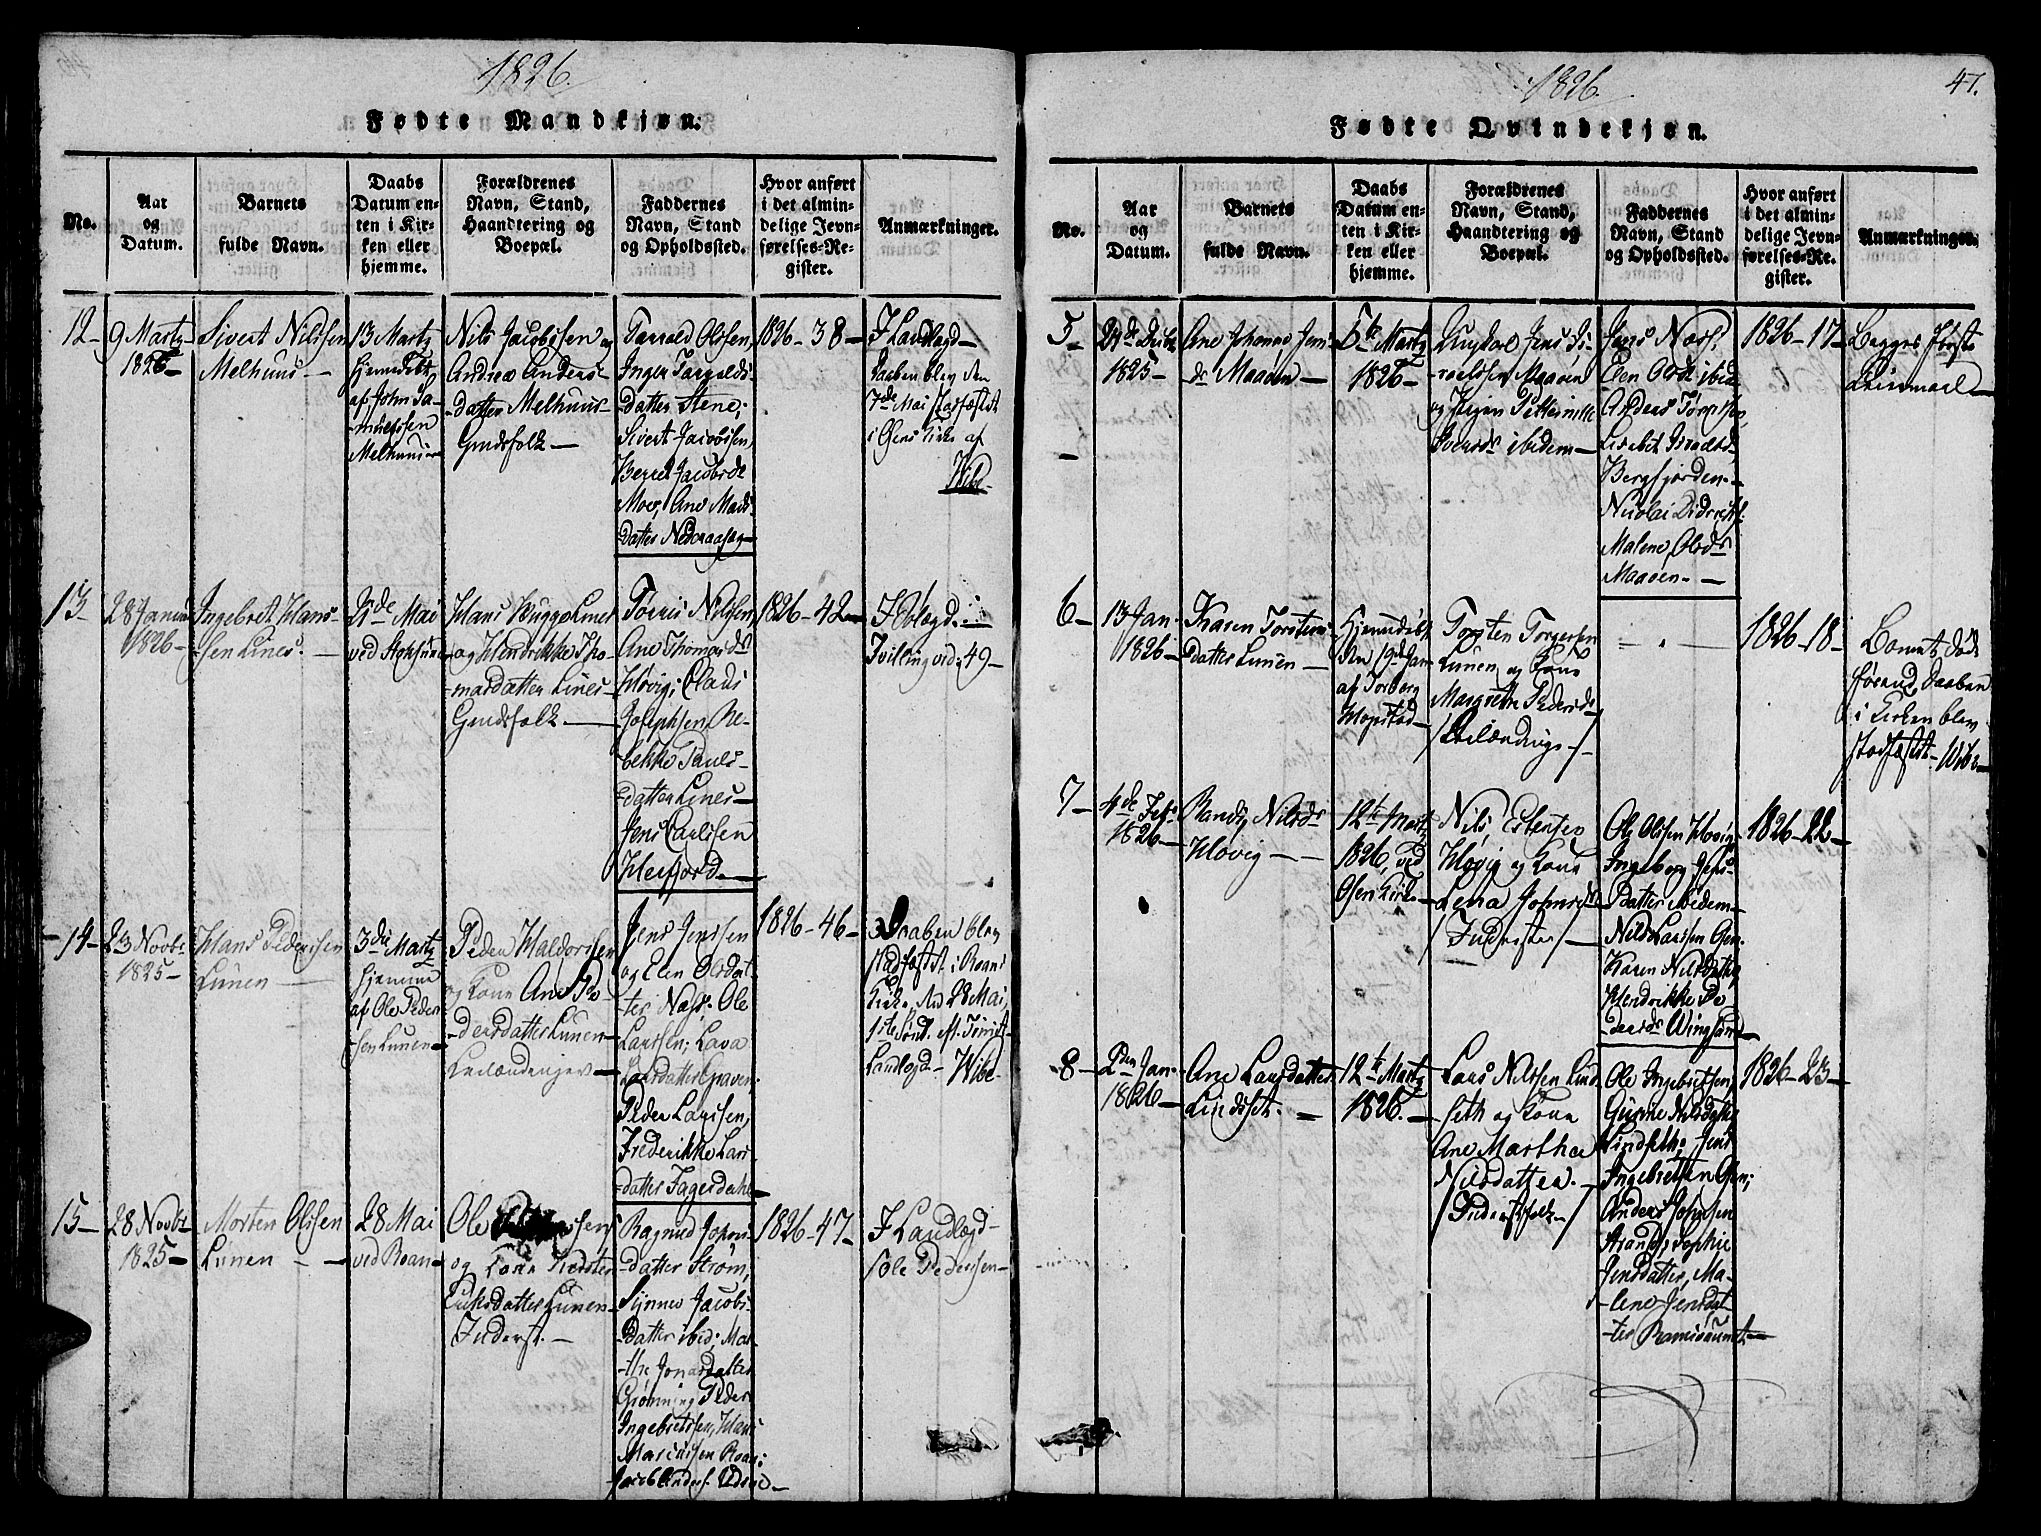 1826
Fødte Mandkjøn.
No.
Aar
og
Datum.
Barnets
fulde Navn.
Daabs
Datum en-
ten i Kir-
ken eller
hjemme.
Forældrenes
Navn, Stand,
Haandtering og
Boepæl.
Faddernes
Navn, Stand
og Opholdssted.
Hvor anført
i det almin-
delige Jevn-
førelses-Re-
gister.
Anmærkninger.
12-
9 Martz
1826-
Sivert Nilssen
Melhuus-
13 Martz
hjemedøbt
af John Sa-
muelsen
Melhuus
Nils Jacobsen og
Andrea Anders-
datter Melhuus-
Gmdsfolk-
Tarald Olsen,
Inger Taralds-
datter Stene;
Sivert Jacobsen,
Berret Jacobsdr
Moe, Ane Mads-
datter Nedraasen-
1826-38-
I Laulagd-
Daaben blev den
7de Mai stadfæstet
i Osens Kirke af
Wibe-
13-
28 Januar
1826-
Ingebret Hans-
sen Lines.-
21de Mai
ved Stoksund
Hans Wiggo Lines
og Hendrikke Tho-
masdatter Lines-
Gmdsfolk-
Torris Nilssen,
Ane Thomasdr
Høvig; Claus
Josephsen, Re-
bekke Pauls-
datter Lines-
Jens Carlssen
Herfjord-
1826-42-
Tvilling vid. 49-
14-
23 Novbr
1825-
Hans Pedersen
Lunen-
3die Martz
hjemme
af Ole Peder-
sen Lunen-
Peder Haldorsen
og Kone Ane Pe-
dersdatter Lunen-
Leilændinger-
Jens Jenssen
og Elen Olsdat-
ter Næss; Ole
Larssen; Lava
Larsdatter Graven;
Peder Larssen,
Frederikke Lars-
datter Fagerdahl-
1826-46-
Daaben blev
stadfæstet i Roans
Kirke, den 28 Mai,
1ste Sønt. ef. Trinit.
Laulagd- Wibe-
15-
28 Novbr
1825-
Morten Olssen
Lunen-
28 Mai
ved Roan-
Ole
og Kone
Eriksdatter Lunen-
Inderst.-
Ragnild Johns-
datter Strøm,
Synnev Jacobs-
datter ibid; Mar-
the Jonasdatter
Grønning Peder
Ingebretssen, Hans
Marcussen Roan;
Jacob Anders.
1826-47-
I Laulagd-
Ole Pedersen-
1826.
47.
Fødte Qvindekjøn.
No.
Aar
og
Datum.
Barnets
fulde Navn.
Daabs
Datum en-
ten i Kir-
ken eller
hjemme.
Forældrenes
Navn, Stand,
Haandtering og
Boepæl.
Faddernes
Navn, Stand
og Opholdssted.
Hvor anført
i det almin-
delige Jevn-
førelses-Re-
gister.
Anmærkninger.
5-
1825-
Ane Johanna Jens-
dr Maaøen-
5te Martz
1826-
Jens Is-
raelssen Maaøen
ibidem-
Jens Næss.
Elen Olsdr ibid
Bergfjorden-
Nicolai Didrichs.
Malene Olsdr
Maaøen-
1826-17-
Begges første
Leiermaal-
6-
13 Jan.
1826-
Karen Torstens-
datter Lunen-
Hjemmedøbt
den 19de Jan
af Torberg
Hopstad-
Torsten Torgersen
Lunen og Kone
Margrethe Pedersdr
/Leilændinge-/
1826-18-
Barnet døde
førend Daaben
i Kirken blev
stadfæstet- Wibe-
7-
4de Febr.
1826-
Randi Nilsdr
Høvig-
12te Martz
1826, ved
Osens Kirke-
Nils Estensen
Høvig og Kone
Lena Johnsdr
/Inderster/-
Ole Olssen Høvig
Ingeborg Jens-
datter ibidem-
Nils Larssen Osen.
Karen Nilsdatter
Hendrikke Pe-
dersdr Wingsand-
1826-22-
8-
2den Jan.
1826-
Ane Larsdatter
Lindseth.-
12te Martz
1826.-
Lars Nilssen Lind-
seth og Kone
Ane Martha
Nilsdatter.-
/Inderstfolk-/
Ole Ingebretsen,
Gurine Nilsdatter
Lindseth; Jens
Ingebretsen Osen;
Anders Johnsen
Strand; Sophie
Jensdatter, Ma-
lene Jensdat-
ter Ramsøsund-
1826-23-